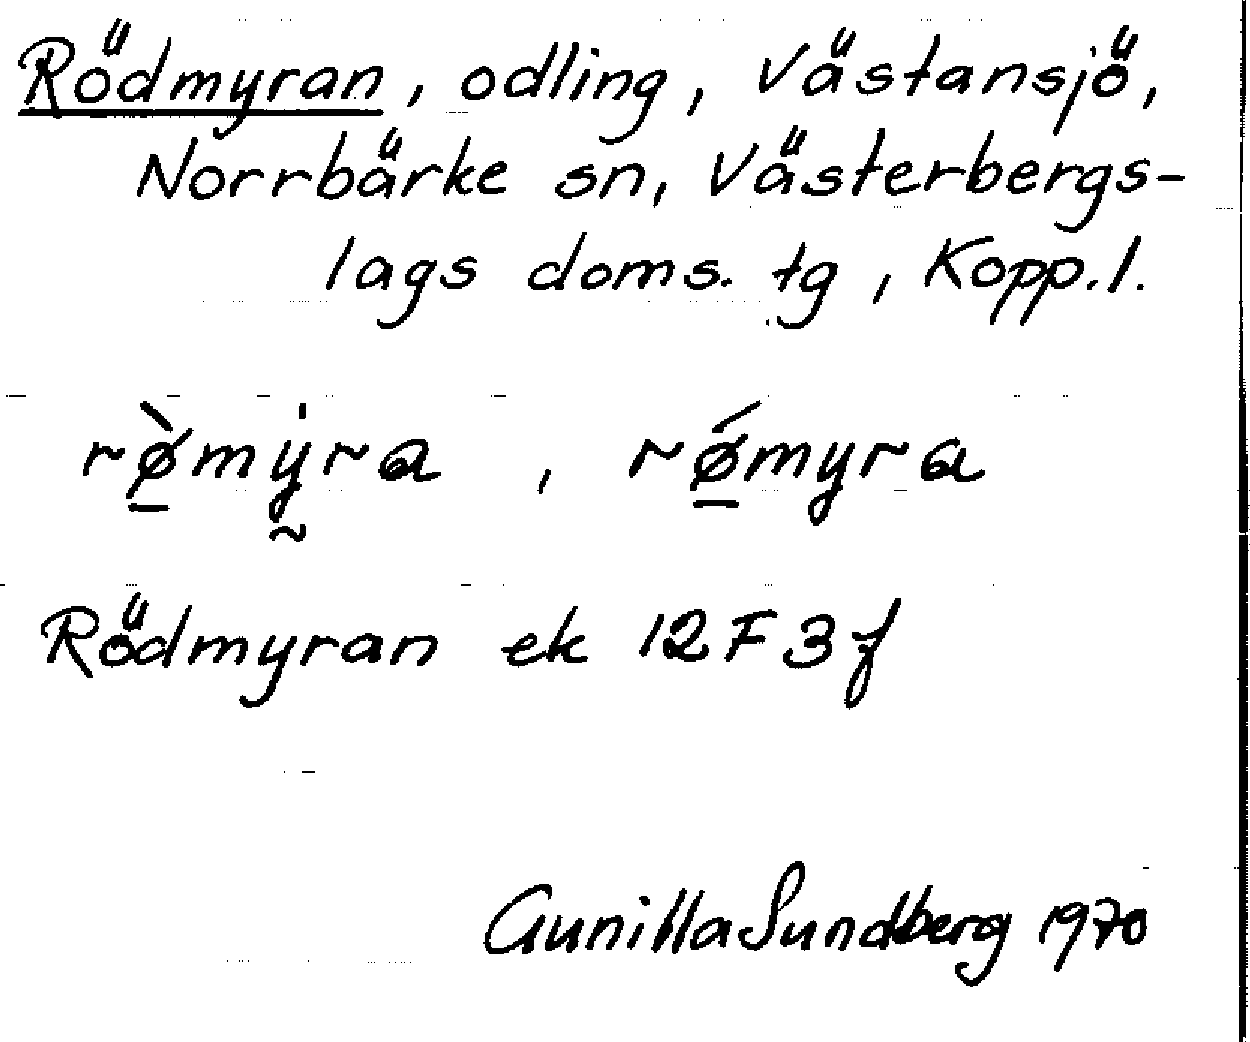 Rödmyran, odling, Västansjö,
Norrbärke sn, Västerbergs-
lags doms. tg, Kopp.l.
rø̱̀my̰̍ra, rǿ̱myra
Rödmyran ek 12F3f
Gunilla Sundberg 1970